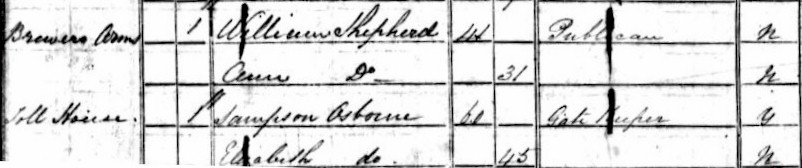 Brewers Arms 1 William Shepherd 44 Publican N
Ann Do 31 N
Toll House. 1 Sampson Osborne 60 Gate Keeper Y
Elizabith do. 45 N